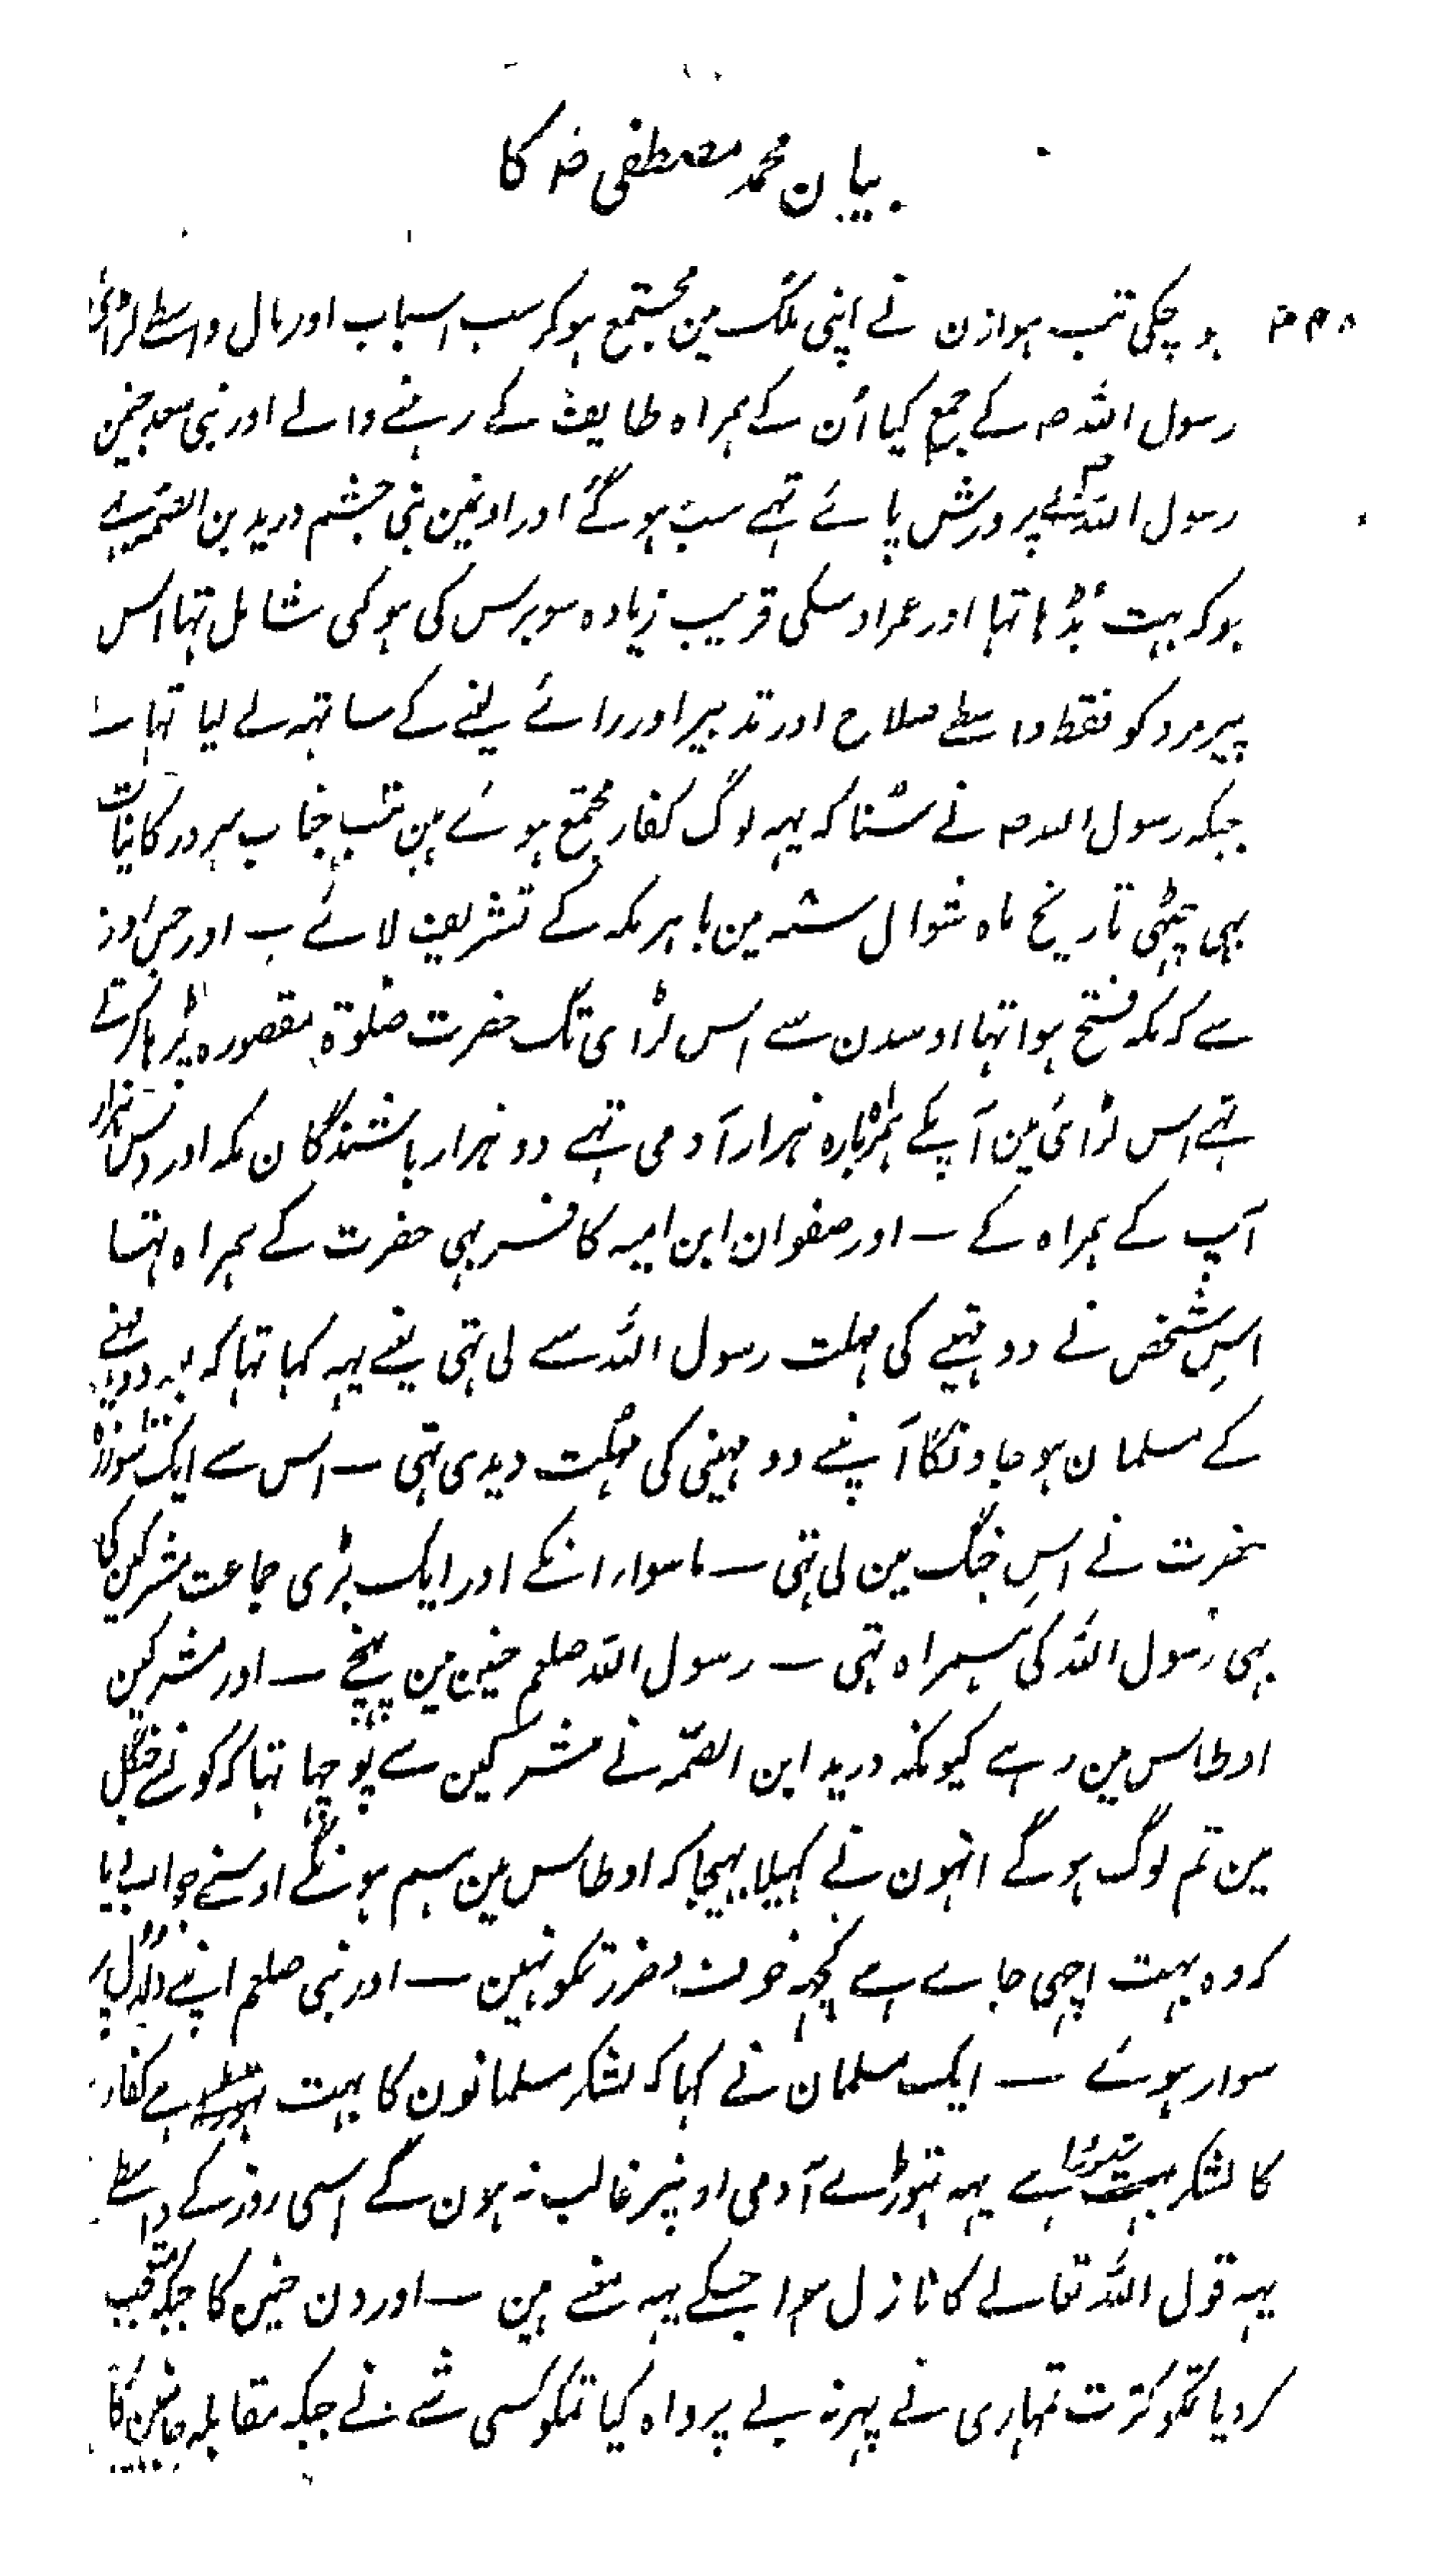 بیان محمد مصطفی صہ کا
ہوچکی تب ہوازن نے اپنی ملک مین مجتمع ہوکر سب اسباب اور مال واسطے لڑائی
رسول اللہ صہ کے جمع کیا اُن کے ہمراہ طایف کے رہنے والے اور بنی سعد جنمین
رسول اللہ صہ پلے پرورش پائے تہے سب ہوگئے اور اونمین بنی جشم درید بن الصمہ بہے
ہوکہ بہت بُڈہا تہا اور عمر اوسکی قریب زیادہ سو برس کی ہوگی شامل تہا اس
پیر مرد کو فقط واسطے صلاح اور تدبیر اور رائے لینے کے ساتہہ لے لیا تہا ــ
جبکہ رسول اللہ صہ نے سُنا کہ یہہ لوگ کفار مجتمع ہوئے ہین تب جناب سرور کاینات
بہی چہٹی تاریخ ماہ شوال سنہ مین باہر مکہ کے تشریف لائے ــ اور جس روز
سے کہ مکہ فتح ہوا تہا اوسدن سے اس لڑای تک حضرت صلوۃ مقصورہ پڑہا کرتے
تہے اس لڑائی مین آپکے ہمراہ بارہ ہزار آدمی تہے دو ہزار باشندگان مکہ اور دس ہزار
آپ کے ہمراہ کے ــ اور صفوان ابن امیہ کافر بہی حضرت کے ہمراہ تہا
اس شخص نے دو مہینے کی مہلت رسول اللہ سے لی تہی یعنے یہہ کہا تہا کہ بعد دو مہینے
کے مسلمان ہو جاونگا آپنے دو مہینی کی مہلت دیدی تہی ــ اس سے ایک سو زرہ
حضرت نے اس جنگ مین لی تہی ــ ماسوار انکے اور ایک بڑی جماعت مشرکین کی
بہی رسول اللہ کی ہمراہ تہی ــ رسول اللہ صلعم حنین مین پہنچے ــ اور مشرکین
اوطاس مین رہے کیونکہ درید ابن الصمّہ نے مشرکین سے پوچہا تہا کہ کونے جنگل
مین تم لوگ ہوگے انہون نے کہیلا بہیجا کہ اوطاس مین ہم ہونگے اوسنے جواب دیا
کہ وہ بہت اچہی جاے ہے کچہہ خوف و ضرر تمکو نہین ــ اور نبی صلعم اپنے دلدل پر
سوار ہوئے ــ ایک مسلمان نے کہا کہ لشکر مسلمانون کا بہت ہے کفار
کا لشکر تہوڑا ہے یہہ تہوڑے آدمی اونپر غالب نہ ہون گے اسی روز کے واسطے
یہہ قول اللہ تعالے کا نازل ہوا جسکے یہہ معنے ہین ــ اور دن حنین کا جبکہ متعجب
کردیا تمکو کثرت تمہاری نے پہر نہ بے پرواہ کیا تمکو کسی شے نے جبکہ مقابلہ جانبین کا